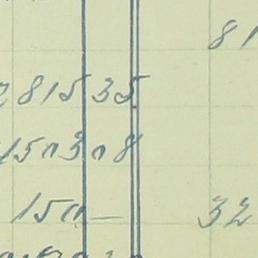 81
281535
150308
150 — 32